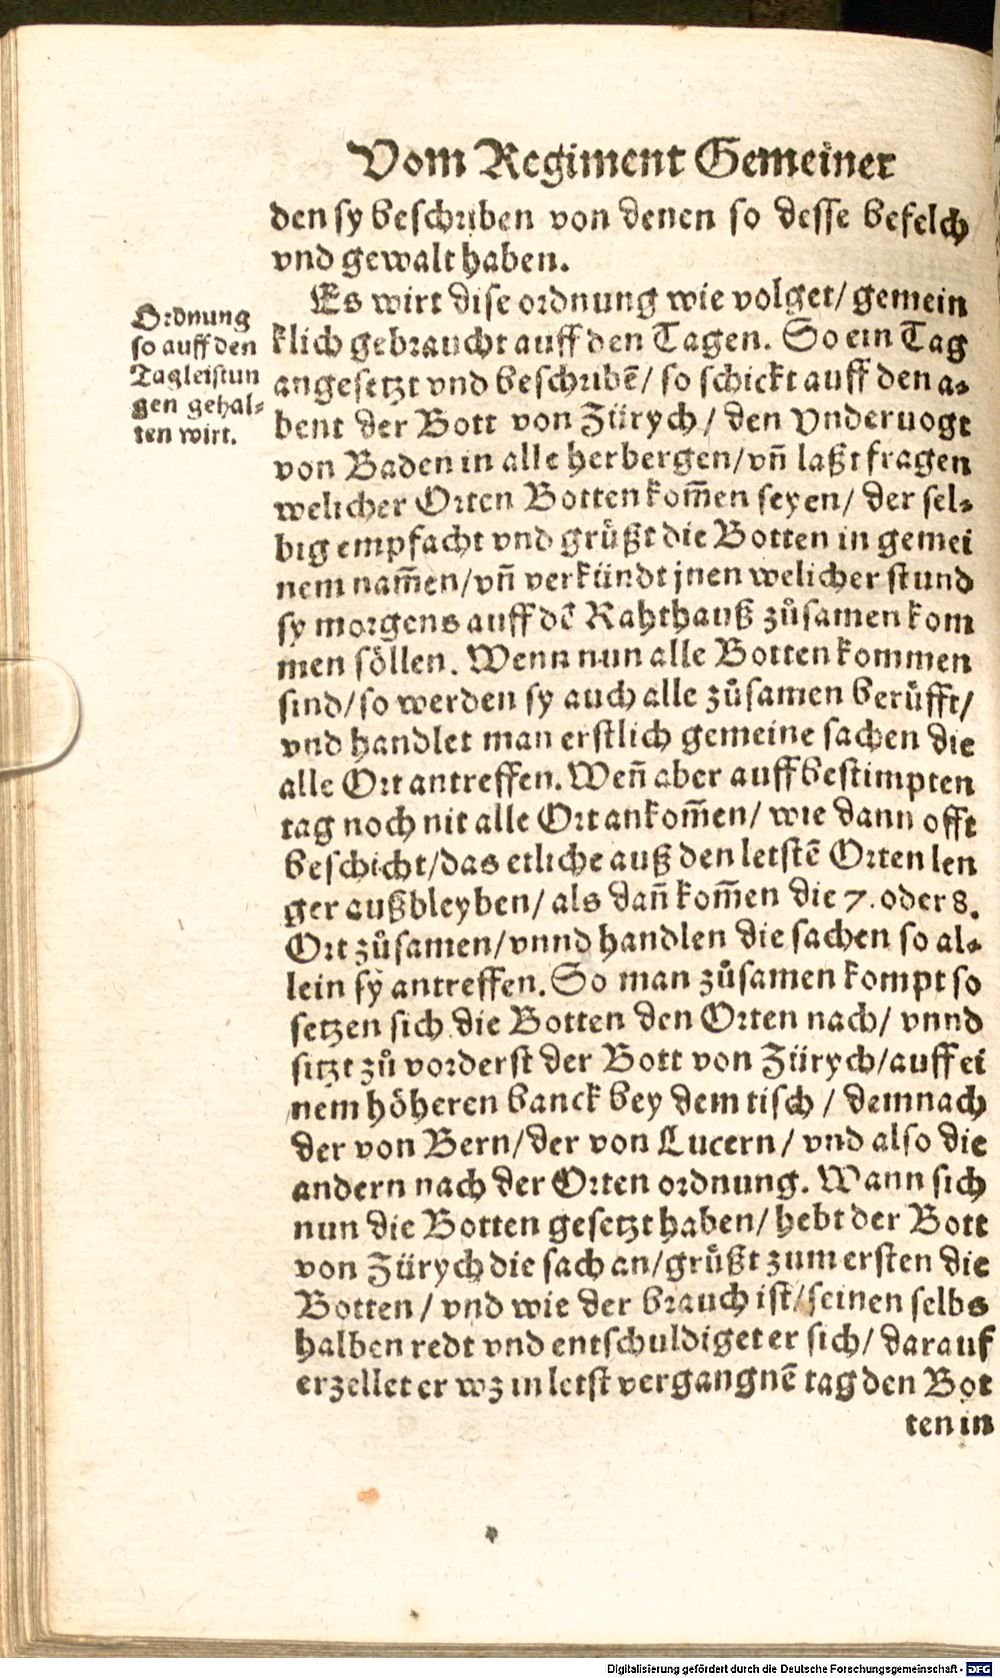 Vom Regiment Gemeiner
den sy beschriben von denen so desse befelch
vnd gewalt haben.
Ordnung
so auff den
Tagleistun
gen gehal-
ten wirt.
Es wirt dise ordnung wie volget/ gemein
klich gebraucht auff den Tagen. So ein Tag
angesetzt vnd beschribē/ so schickt auff den a-
bent der Bott von Zürych/ den Vnderuogt
von Baden in alle herbergen/ vñ laßt fragen
welicher Orten Botten kom̄en seyen/ der sel-
big empfacht vnd grůßt die Botten in gemei
nem nam̄en/ vñ verkündt jnen welicher stund
sy morgens auff dē Rahthauß zůsamen kom
men söllen. Wenn nun alle Botten kommen
sind/ so werden sy auch alle zůsamen berüfft/
vnd handlet man erstlich gemeine sachen die
alle Ort antreffen. Weñ aber auff bestimpten
tag noch nit alle Ort ankom̄en/ wie dann offt
beschicht/ das etliche auß den letstē Orten len
ger außbleyben/ als dañ kom̄en die 7. oder 8.
Ort zůsamen/ vnnd handlen die sachen so al-
lein sy antreffen. So man zůsamen kompt so
setzen sich die Botten den Orten nach/ vnnd
sitzt zů vorderst der Bott von Zürych/ auff ei
nem höheren banck bey dem tisch/ demnach
der von Bern/ der von Lucern/ vnd also die
andern nach der Orten ordnung. Wann sich
nun die Botten gesetzt haben/ hebt der Bott
von Zürych die sach an/ grůßt zum ersten die
Botten/ vnd wie der brauch ist/ seinen selbs
halben redt vnd entschuldiget er sich/ darauf
erzellet er wz in letst vergangnē tag den Bot
ten in
Digitalisierung gefördert durch die Deutsche Forschungsgemeinschaft - DFG